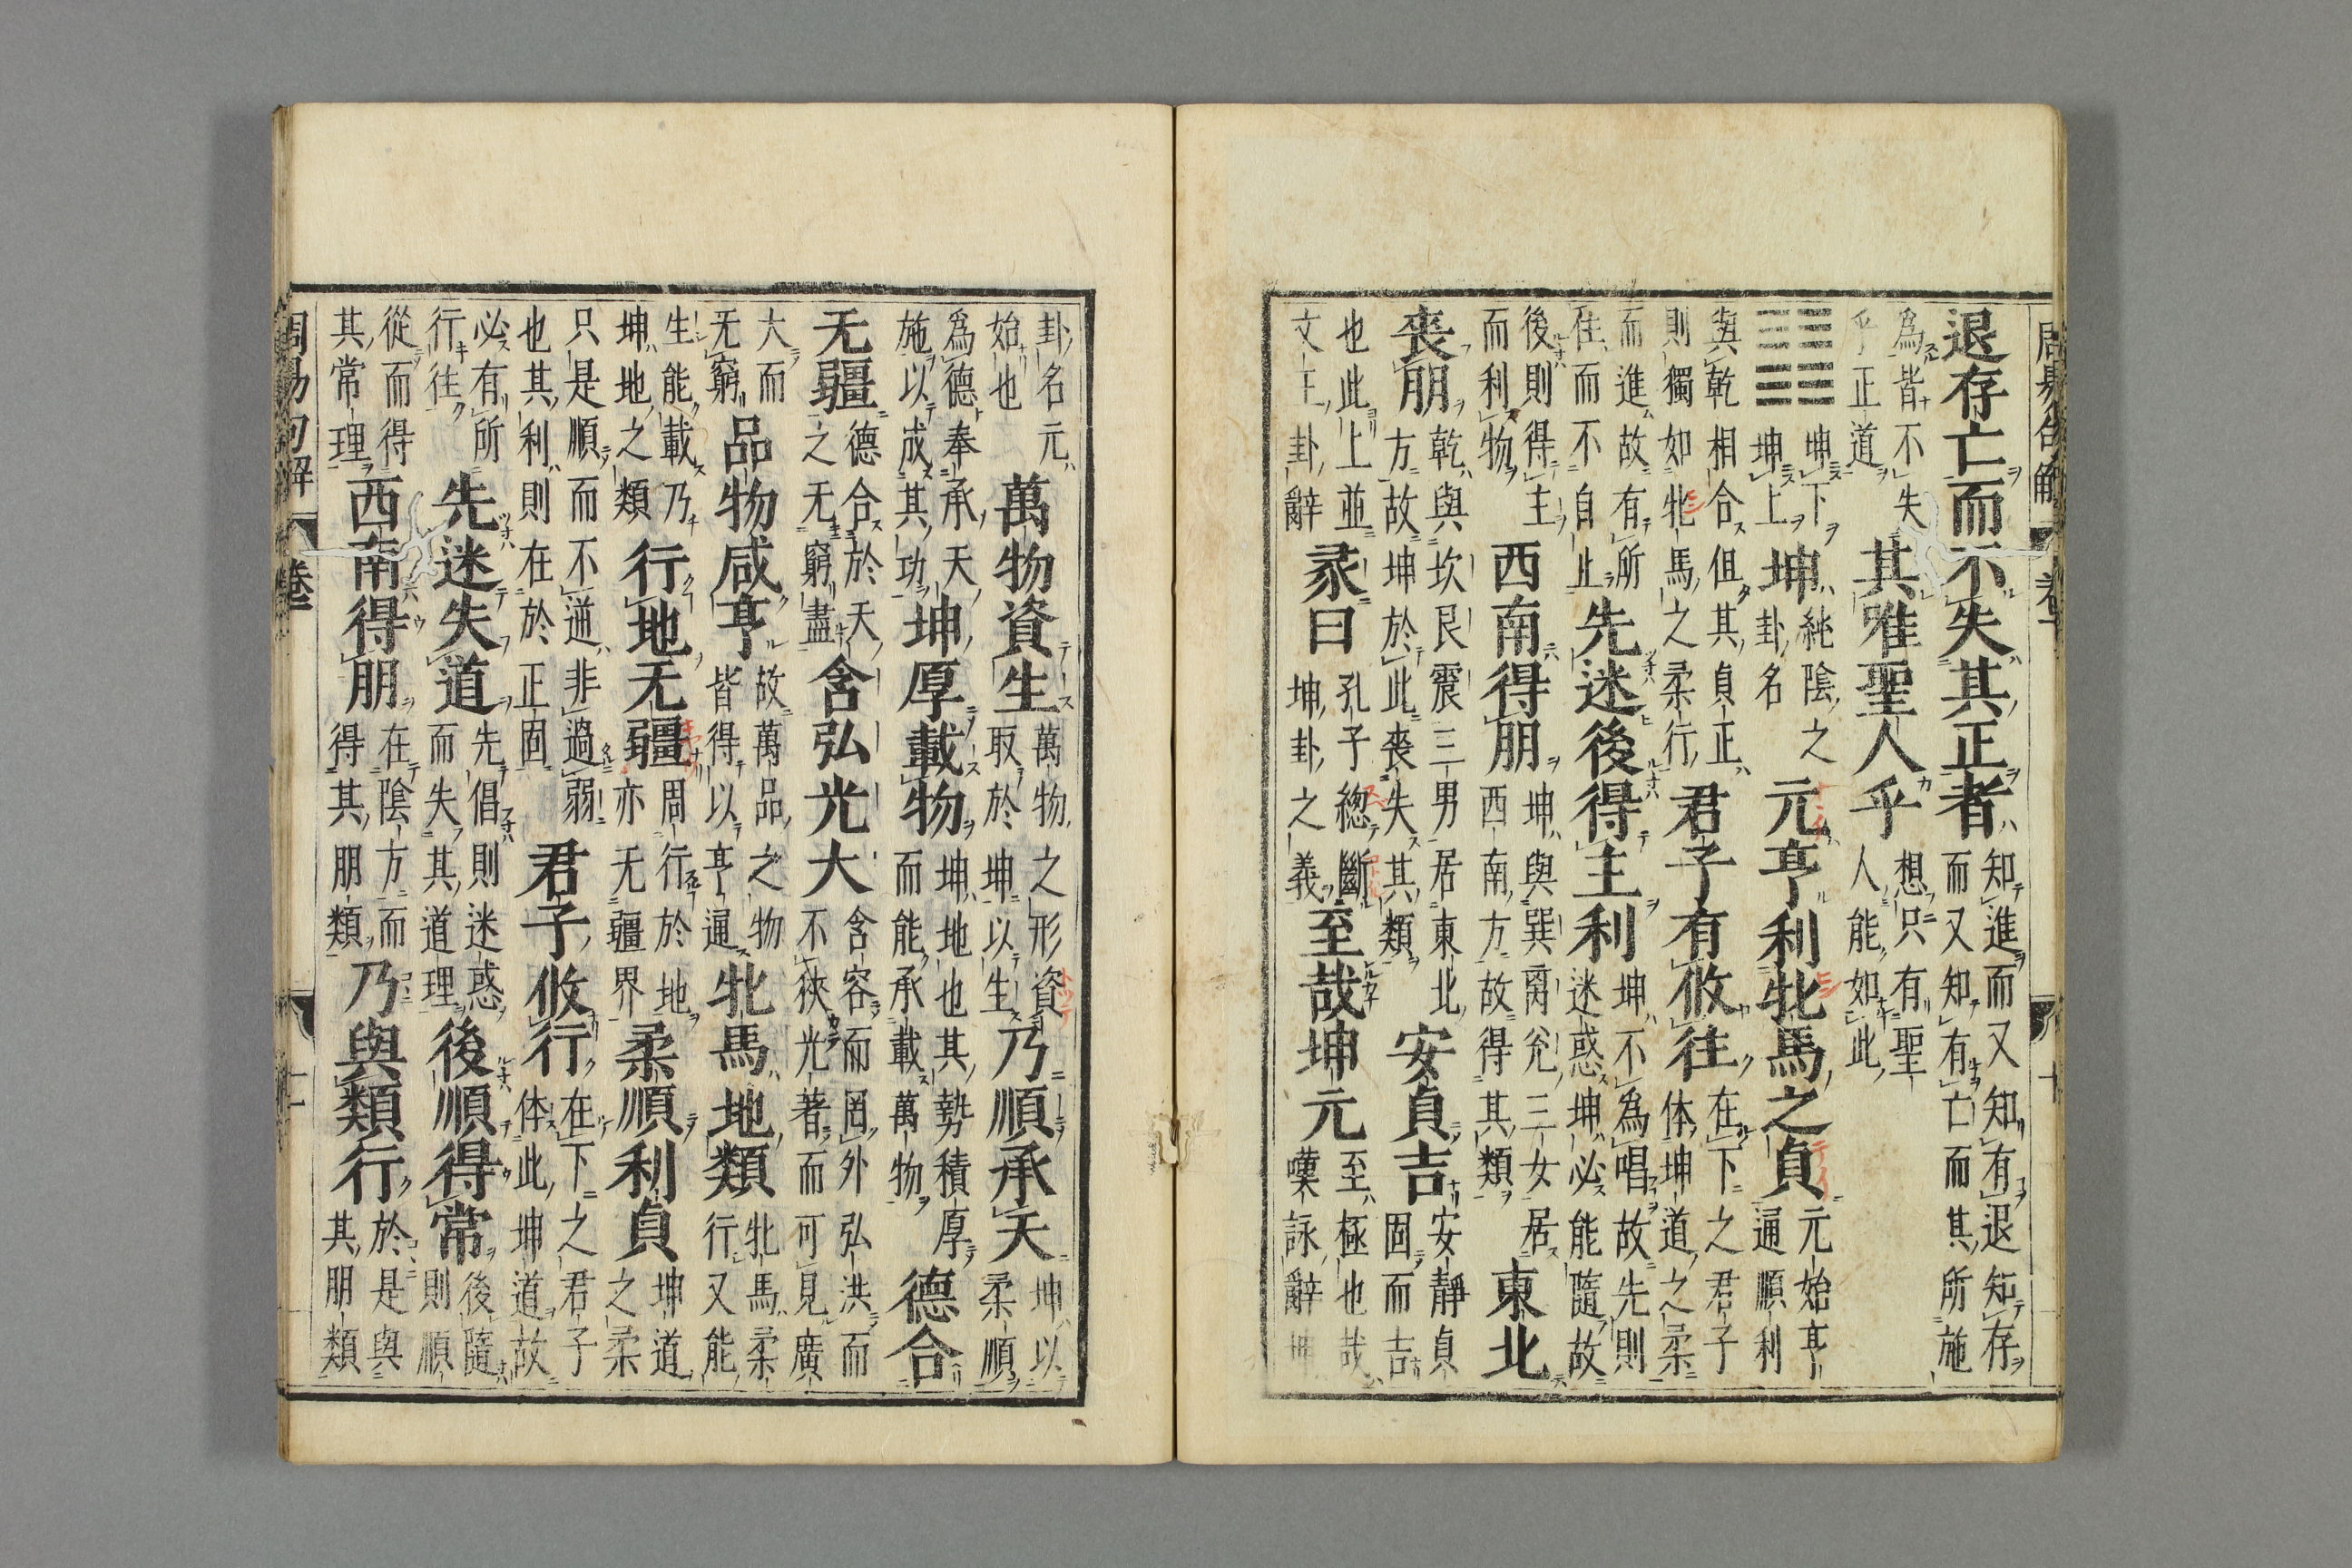 周易句解 卷一 十
退存亡而不失其正者知進而又知有退知存而又知有亡而其所施
為皆不失乎正道其唯聖人乎想只有聖人能如此
坤下坤上坤純陰之卦名元亨利牝馬之貞元始亨通順利
與乾相合但其貞正則獨如牝馬之柔行君子有攸往在下之君子体坤道之柔
而進故有所往而不自止先迷後得主利坤不為唱故先則迷惑坤必能隨故
後則得主而利物西南得朋坤與巽离兊三女居西南方故得其類東北
喪朋乾與坎艮震三男居東北方故坤於此喪失其類安貞吉安靜貞固而吉
也此上並文王卦辭彖曰孔子總斷坤卦之義至哉坤元至極也哉嘆詠辭坤
卦名元始也萬物資生萬物之形資取於坤以生乃順承天坤以柔順
為德奉承天施以成其功坤厚載物坤地也其勢積厚而能承載萬物德合
无疆德合於天之无窮盡含弘光大含容而罔外弘洪而不狹光著而可見廣
大而无窮品物咸亨故萬品之物皆得以亨通牝馬地類牝馬柔行又能
生能載乃坤地之類行地无疆周行於地亦无疆界柔順利貞坤道之柔
只是順而不逆非過弱也其利則在於正固君子攸行在下之君子体此坤道故
必有所行往先迷失道先倡則迷惑而失其道理後順得常後隨則順
從而得其常理西南得朋在陰方而得其朋類乃與類行於是與其朋類
周易句解 卷一 十一